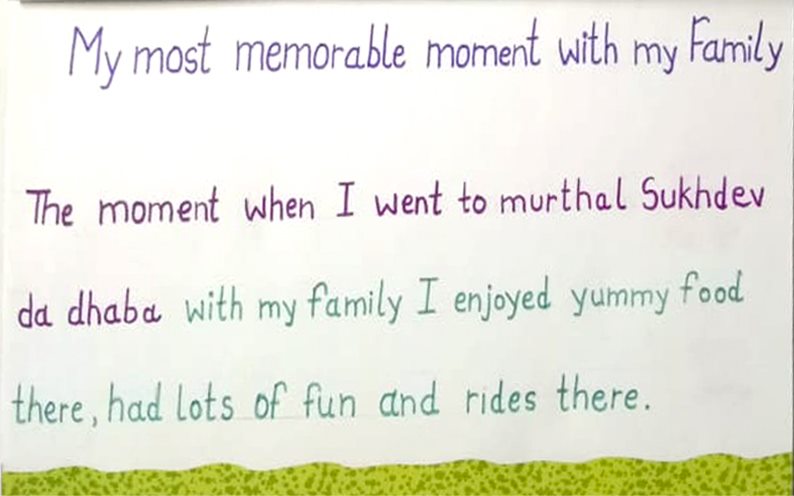 My most memorable moment with my Family
The moment when I went to murthal Sukhdev
da dhaba with my family I enjoyed yummy food
there, had lots of fun and rides there.